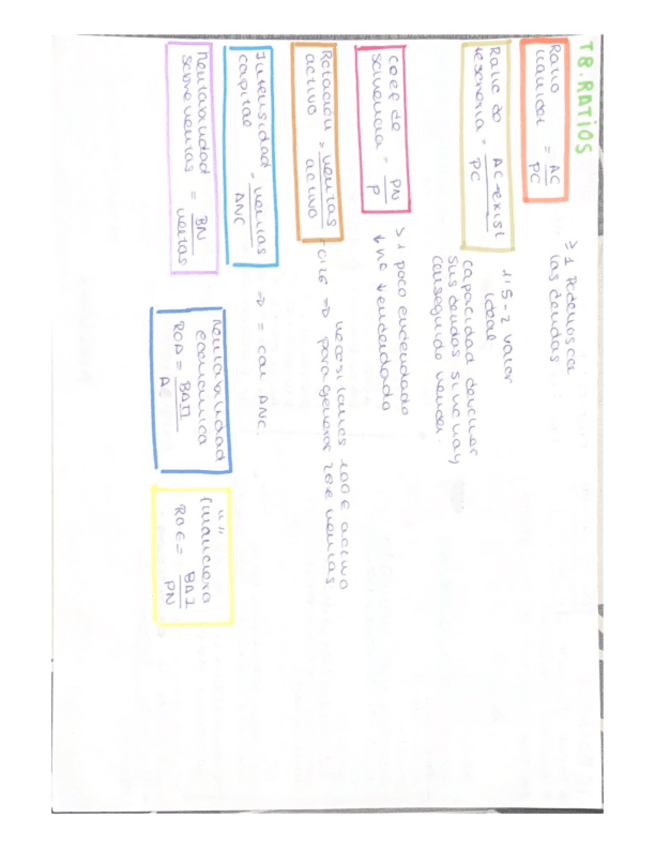 T8. RATIOS
Ratio
liquidez = AC
PC
≥ 1 Podemos ca
las deudas
Ratio de
tesorería = AC-exist
PC
1'5-2 valor
ideal
capacidad devolver
sus deudas si no hay
conseguido vender.
Coef de
solvencia = PN
P
> 1 poco endeudado
no endeudado
Rotación = ventas
activo activo
0,26 => necesitamos 100€ activo
para generar 26€ ventas
Intensidad
capital = ventas
ANC
=> = con ANC.
Rentabilidad
sobre ventas = BN
ventas
Rentabilidad
económica
ROA = BAII
A
" "
financiera
ROE = BAI
PN